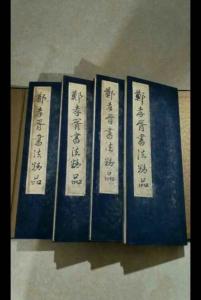 鄭孝胥書法精品
鄭孝胥書法精品
鄭孝胥書法精品
鄭孝胥書法精品